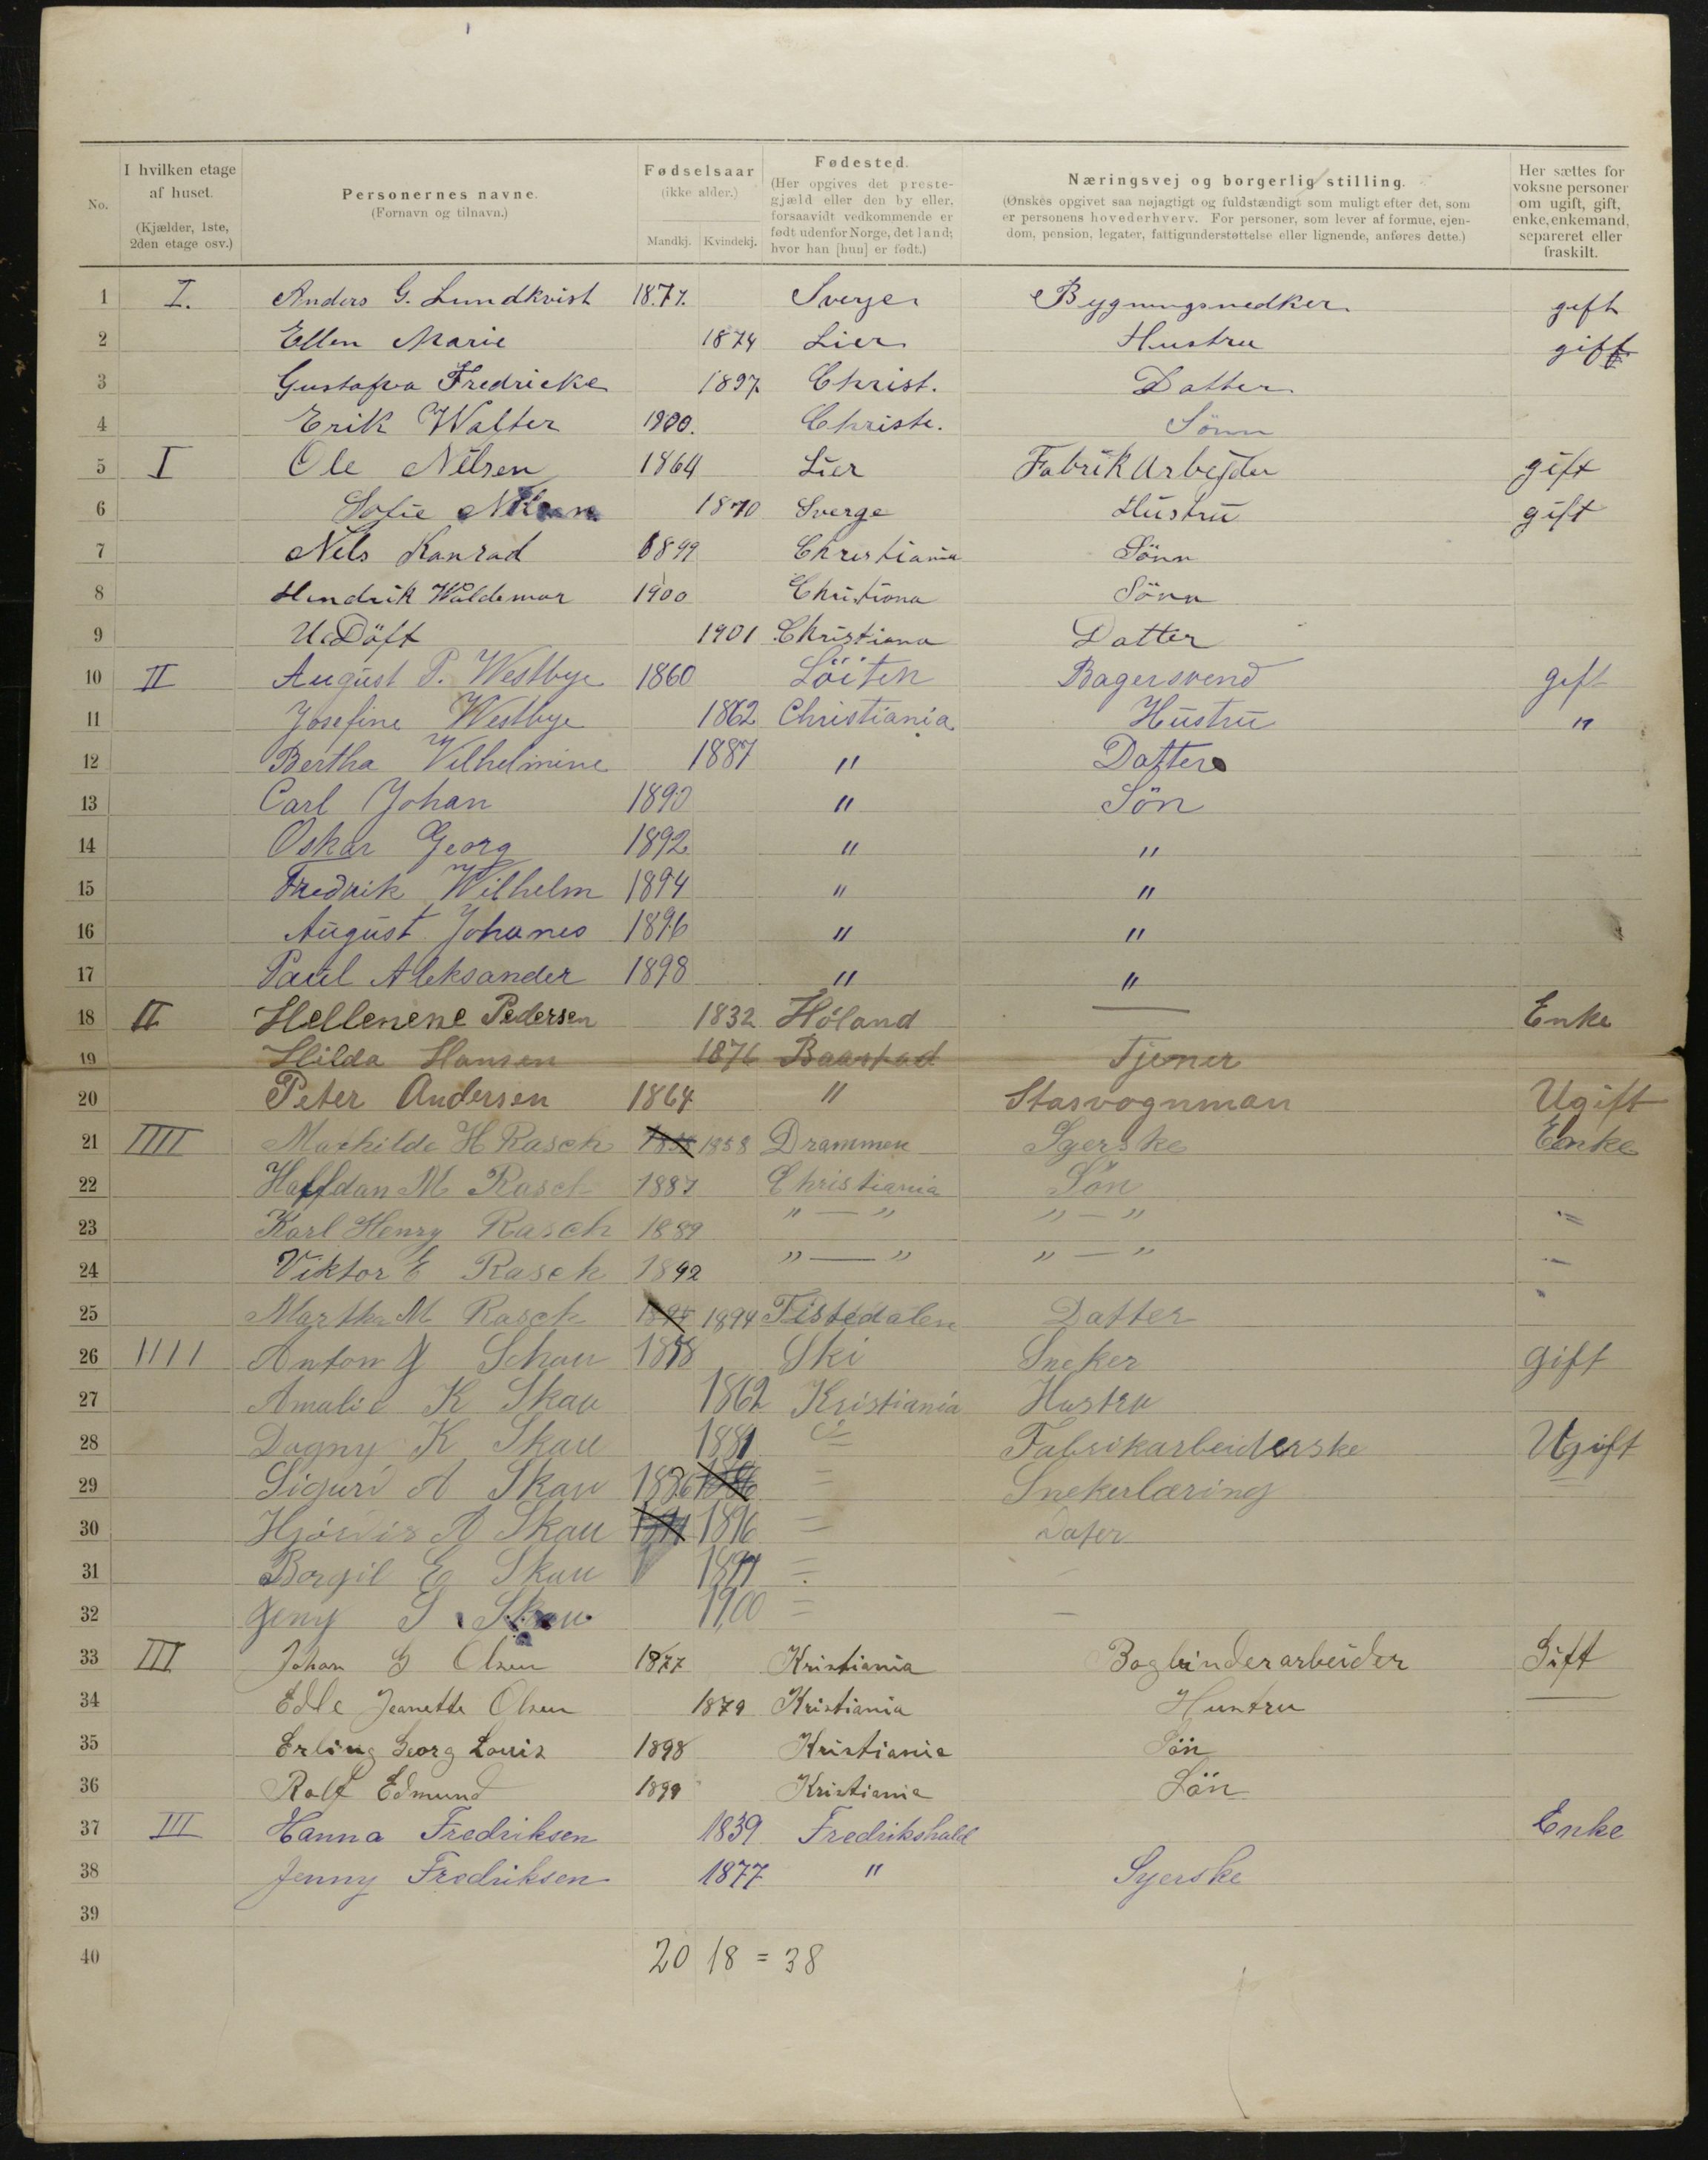 No.
I hvilken etage af huset. (Kjælder, 1ste, 2den etage osv.)
Personernes navne. (Fornavn og tilnavn.)
Fødselsaar (ikke alder.) Mandkj. Kvindekj.
Fødested. (Her opgives det prestegjæld eller den by eller, forsaavidt vedkommende er født udenfor Norge, det land; hvor han [hun] er født.)
Næringsvej og borgerlig stilling. (Ønskes opgivet saa nøjagtigt og fuldstændigt som muligt efter det, som er personens hovederhverv. For personer, som lever af formue, ejendom, pension, legater, fattigunderstøttelse eller lignende, anføres dette.)
Her sættes for voksne personer om ugift, gift, enke, enkemand, separeret eller fraskilt.
1 I. Anders G. Lundkvist 1877. Sverge Bygningsnedker gift
2 Ellen Marie 1874 Lier Hustru gift
3 Gustafva Fredricke 1897 Christ. Datter
4 Erik Walter 1900. Christi. Sönn
5 I Ole Nilsen 1864 Lier FabrikArbejder gift
6 Sofie Nilsen 1870 Sverge Hustru gift
7 Nils Konrad 1899 Christiania Sönn
8 Hendrik Waldemar 1900 Christiana Sönn
9 U Döft 1901 Christiana Datter
10 II August P. Westbye 1860 Löiten Bagersvend gift
11 Josefine Westbye 1862 Christiania Hustru "
12 Bertha Vilhelmine 1887 " Datter
13 Carl Johan 1890 " Sön
14 Oskar Georg 1892 " "
15 Fredrik Wilhelm 1894 " "
16 August Johanes 1896 " "
17 Paul Aleksander 1898 " "
18 II Hellenene Pedersen 1832 Höland — Enke
19 Hilda Hansen 1876 Baastad Tjener
20 Peter Andersen 1864 " Stasvognman Ugift
21 IIII Mathilde H Rasch 1858 1858 Drammen Syerske Enke
22 Halfdan M Rasch 1887 Christiania Sön
23 Karl Henry Rasch 1889 " — " " — "
24 Viktor E Rasch 1892 " — " " — "
25 Martha M Rasch 1894 1894 Tistedalen Datter
26 IIII Anton J Schau 1858 Ski Sneker gift
27 Amalie K Skau 1862 Kristiania Hustru
28 Dagny K Skau 1881 Fabrikarbeiderske Ugift
29 Sigurd A Skau 1886 1886 = Snekerlæring =
30 Hjördis A Skau 1896 = Dater
31 Borgil E Skau =
32 Jeny S Skau 1900 = —
33 III Johan G Olsen 1877 Kristiania Bogbinderarbeider Gift
34 Edle Jeanette Olsen 1879 Kristiania Hustru —
35 Erling Georg Louis 1898 Kristiania Sön
36 Rolf Edmund 1899 Kristiania Sön
37 III Hanna Fredriksen 1839 Fredrikshald Enke
38 Jenny Fredriksen 1877 " Syerske
39
40 20 18 = 38